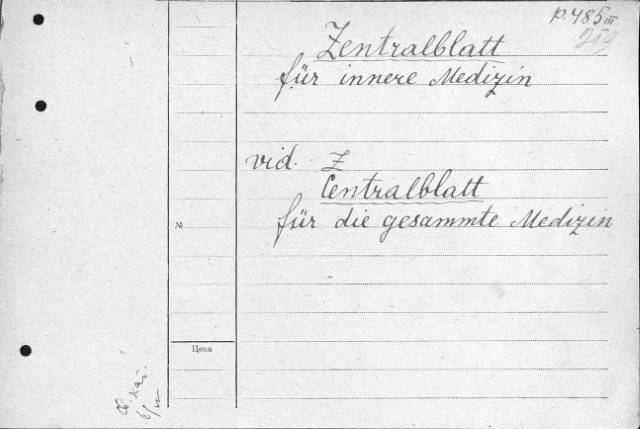 p. 485 III
Zentralblatt
für innere Medizin
vid. Z
Centralblatt
für die gesammte Medizin
№
Цена